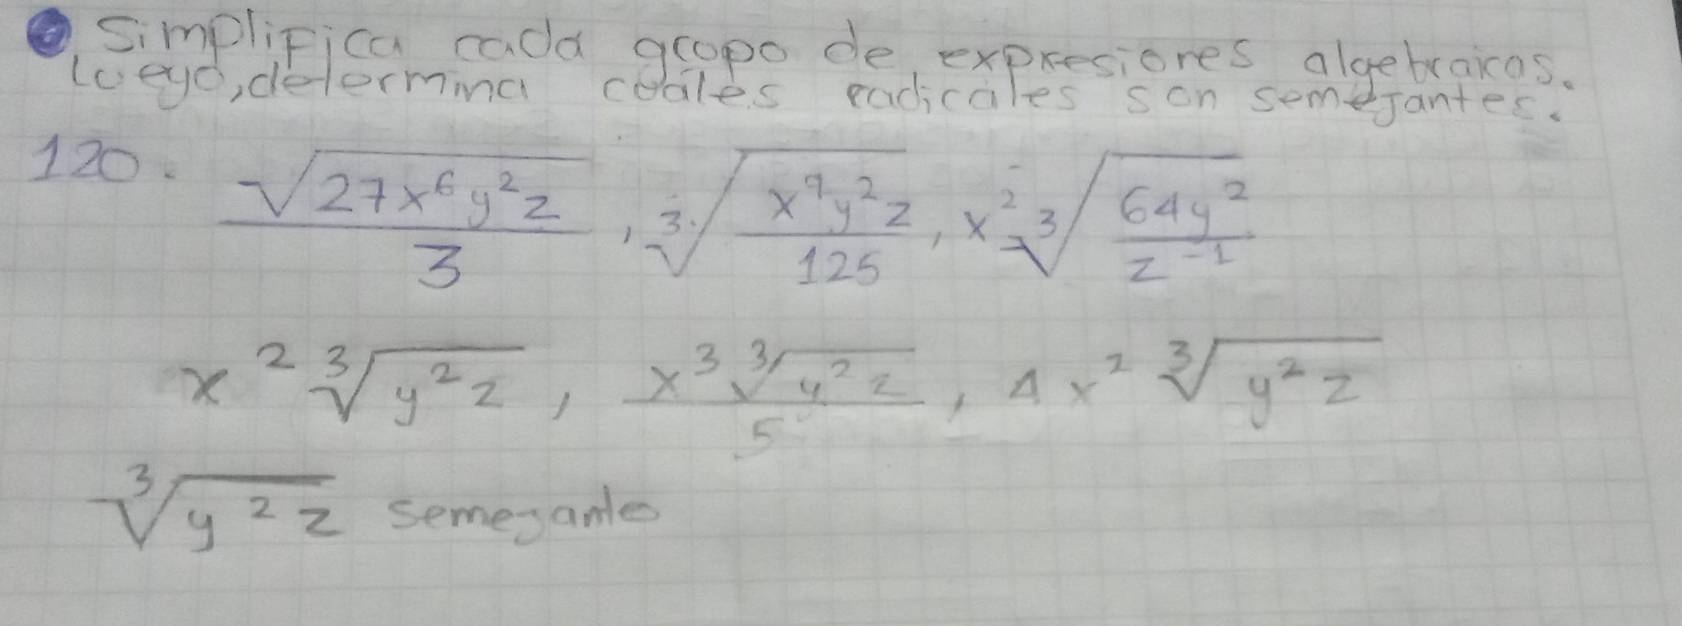 Simplifica cada grupo de expresiones algebraicas.
Luego, determina cuáles radicales son semejantes.
120. √(27x⁶y²z)/3, ∛(x⁹y²z/125), x² ∛(64y²/z⁻¹)
x² ∛(y²z), x³∛(y²z)/5, 4x² ∛(y²z)
∛(y²z) semejantes